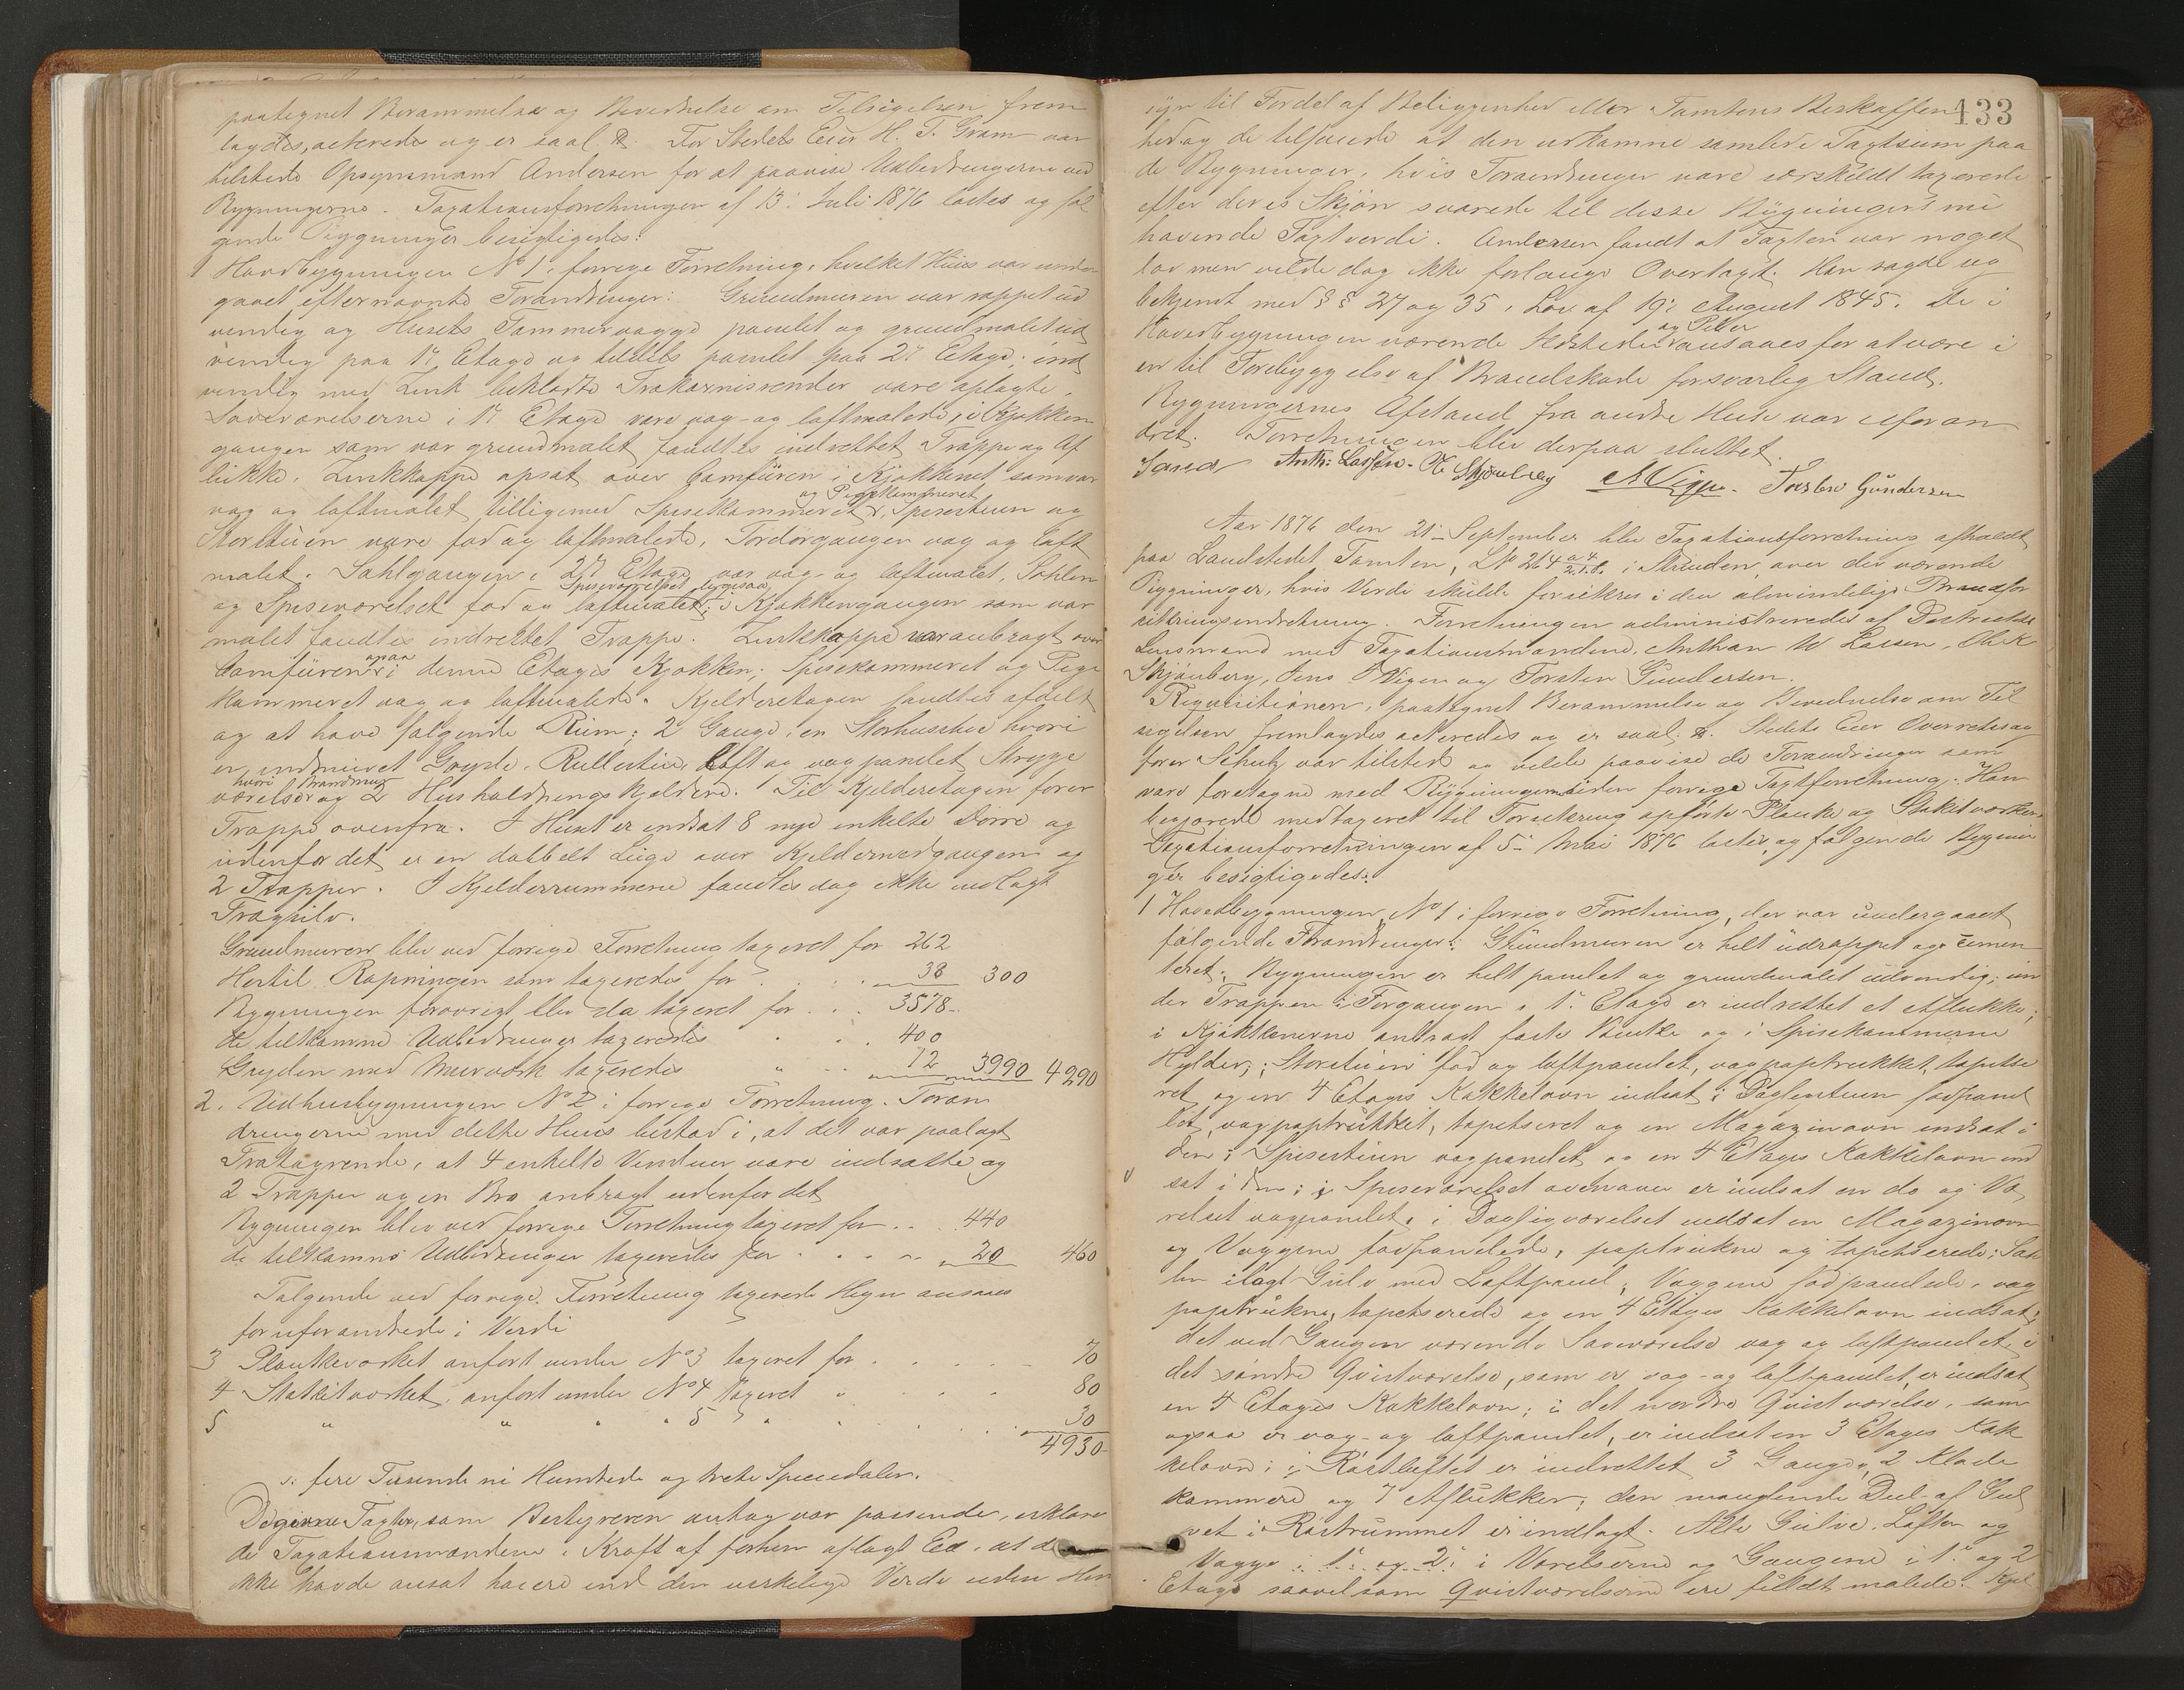 paategnet Berammelse og Bevidnelse om Tilsigelsen frem
lagdes, acterede og er saal. For Stedets Eier H. T. Gram var
tilstede Opsynsmand Andersen for at paavise Udbedringerne ved
Bygningerne. Taxationsforretningen af 13: Juli 1876 læstes og føl
gende Bygninger besigtigedes:
1 Hovedbygningen No 1 i forrige Forretning, hvilket Huus var under
gaaet efternævnte Forandringer: Grundmuren var rappet ud
vendig og Husets Tømmervægge panelet og grundmalet ud
vendig paa 1ste Etage og tildels panelet paa 2den Etage; ind
vendig med Zink beklædte Trækarnisrender vare oplagte,
Soveværelserne i 1ste Etage vare væg- og loftmalede, i Kjøkken
gangen som var grundmalet fandtes indrettet Trappe og Af
lukke, Zinkkappe opsat over Camfüren i Kjøkkenet som var
væg og loftmalet tilligemed Spisekammeret og Pigekammeret, Spisestuen og
Storstuen vare fod og loftmalede, Fordørgangen væg og loft
malet. Sahlgangen i 2den Etage var væg- og loftmalet, Sahlen
og Spiseværelset fod og loftmalet; Soveværelset ligesaa; i Kjøkkengangen som var
malet fandtes indrettet Trappe. Zinkkappe var anbragt over
Camfüren ogsaa i denne Etages Kjøkken; Spisekammeret og Pige
kammeret væg og loftmalede. Kjelderetagen fandtes afdelt
og at have følgende Rum: 2 Gange, en Storhusstue hvori
er indmuret Gryde, Rullestue, loft og vægpanelet, Stryge
værelse hvori Brandmur og 2 Husholdnings Kjeldere. Til Kjelderetagen fører
Trappe ovenfra. I Huset er indsat 8 nye enkelte Dørre og
udenfor det er en dobbelt Luge over Kjeldernedgangen og
2 Trapper. I Kjelderrummene fandtes dog ikke indlagt
Trægulv.
Grundmuren blev ved forrige Forretning taxeret for 262
Hertil Rapningen som taxeredes for . . . 38 300
Bygningen forøvrigt blev da taxeret for . . . 3578
de tilkomne Udbedringer taxeredes . . . 400
Gryden med Murværk taxeredes " . . . 12 3990 4290
2. Udhusbygningen No 2 i forrige Forretning. Foran
dringerne med dette Huus bestod i, at det var paalagt
Trætagrende, at 4 enkelte Vinduer vare indsatte og
2 Trapper og en Bro anbragt udenfor det
Bygningen blev ved forrige Forretning taxeret for . . . 440
de tilkomne Udbedringer taxeredes for . . . 20 460
Følgende ved forrige Forretning taxerede Hegn ansaaes
for uforandrede i Verdi
3 Plankeværket anført under No 3 taxeret for . . . . . 70
4 Stakitværket, anført under No 4 taxeret " . . . 80
5 " " " " 5 " " . . . 30
4930
s: fire Tusinde ni Hundrede og trete Speciedaler.
De givne Taxter, som Bestyreren antog var passende, erklære
de Taxationsmændene i Kraft af forhen aflagt Eed, at de
ikke havde ansat høiere end den verkelige Verdi uden Hen
133
syn til Fordel af Beliggenhed eller Tomtens Beskaffen
hed og de tilføiede at den udkomne samlede Taxtsum paa
de Bygninger, hvis Forandringer vare særskildt taxerede
efter deres Skjøn svarede til disse Bygningers nu
havende Taxtverdi. Andersen fandt at Taxten var noget
lav men vilde dog ikke forlange Overtaxt. Han sagde sig
bekjendt med §§ 27 og 35 i Lov af 19: August 1845. De i
Hovedbygningen værende Ildsteder og Piber ansaaes for at være i
en til Forebyggelse af Brandskade forsvarlig Stand.
Bygningernes Afstand fra andre Huse var uforan
dret. Forretningen blev derpaa sluttet.
Anth: Lassen. O Skjønberg JVigen. Torsten Gundersen
Aar 1876 den 21: September blev Taxationsforretning afholdt
paa Landstedet Tomten, L No 264 i Strinden, over de værende
Bygninger, hvis Verdi skulde forsikres i den almindelige Brandfor
sikringsindretning. Forretningen administreredes af Distriktets
Lensmand med Taxationsmændene, Anthon W Lassen, Oluf
Skjønberg, Jens Vigen og Torsten Gundersen.
Requisitionen, paategnet Berammelse og Bevidnelse om Til
sigelsen fremlagdes acteredes og er saal. Stedets Eier Overretssag
fører Schulz var tilsted og vilde paavise de Forandringer som
vare foretagne med Bygningerne siden forrige Taxtforretning. Han
begjærede medtaxeret til Forsikring opførte Planke og Stakitværker
Taxationsforretningen af 5: Mai 1876 læstes og følgende Bygnin
ger besigtigedes:
1 Hovedbygningen, No 1 i forrige Forretning, der var undergaaet
følgende Forandringer: Grundmuren er helt udrappet og cemen
teret; Bygningen er helt panelet og grundmalet udvendig; un
der Trappen i Forgangen i 1: Etage er indrettet et Aflukke;
i Kjøkkenerne anbragt faste Bænke og i Spisekamrene
Hylder; Storstuen fod og loftpanelet, vægpaptrukket, tapetse
ret og en 4 Etages Kakkelovn indsat; Dagligstuen fodpane
let, vægpaptrukket, tapetseret og en Magazinovn indsat i
den; Spisestuen vægpanelet og en 4 Etages Kakkelovn ind
sat i den; i Spiseværelset ovenover er indsat en do og Væ
relset vægpanelet; i Dagligværelset indsat en Magazinovn
og Væggene fodpanelede, paptrukne og tapetserede; Sah
len ilagt Gulv med Loftpanel, Væggene fodpanelede, væg
paptrukne, tapetserede og en 4 Etages Kakkelovn indsat;
det ved Gangen værende Soveværelse væg og loftpanelet; i
det søndre Qvistværelse, som er væg- og loftpanelet, er indsat
en 4 Etages Kakkelovn; i det nordre Qvistværelse, som
ogsaa er væg- og loftpanelet, er indsat en 3 Etages Kak
kelovn; i Røstloftet er indrettet 3 Gange, 2 Klæde
kammere og 7 Aflukker; den manglende Deel af Gul
vet i Røstrummet er indlagt. Alle Gulve, Lofter og
Vægge i 1: og 2: i Værelserne og Gangene i 1: og 2
Etage saavelsom Qvistværelserne ere fuldt malede. Kjel